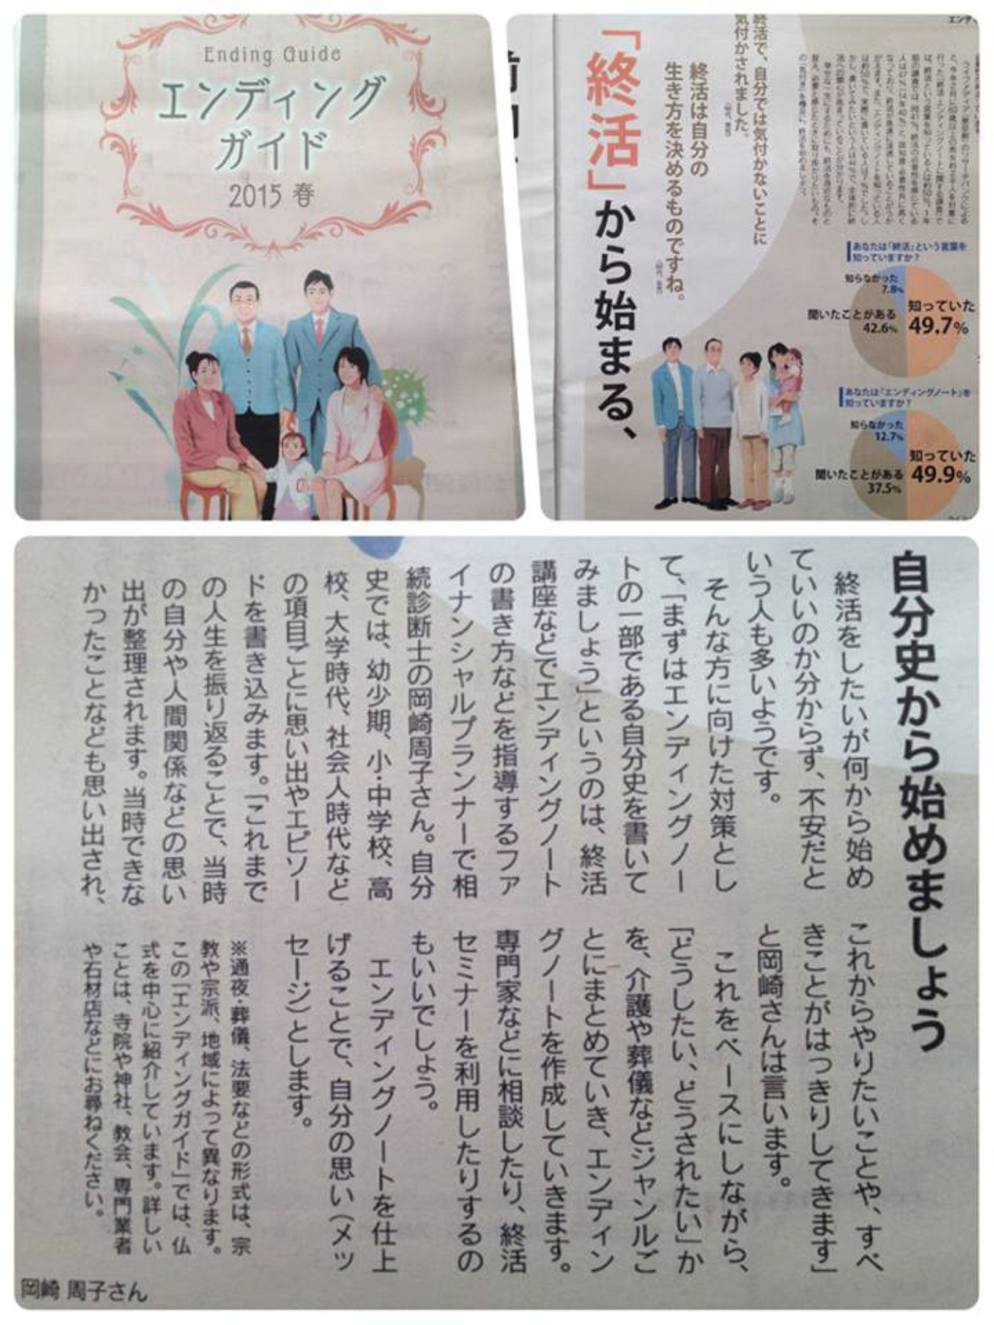 Ending Guide
エンディング
ガイド
2015 春
「終活」から始まる、
終活で、自分では気付かないことに
気付かされました。
終活は自分の
生き方を決めるものですね。
あなたは「終活」という言葉を
知っていますか？
知らなかった
7.8%
聞いたことがある
42.6%
知っていた
49.7%
あなたは「エンディングノート」を
知っていますか？
知らなかった
12.7%
聞いたことがある
37.5%
知っていた
49.9%
自分史から始めましょう
終活をしたいが何から始め
ていいのか分からず、不安だと
いう人も多いようです。
そんな方に向けた対策とし
て、「まずはエンディングノー
トの一部である自分史を書いて
みましょう」というのは、終活
講座などでエンディングノート
の書き方などを指導するファ
イナンシャルプランナーで相
続診断士の岡崎周子さん。自分
史では、幼少期、小・中学校、高
校、大学時代、社会人時代など
の項目ごとに思い出やエピソー
ドを書き込みます。「これまで
の人生を振り返ることで、当時
の自分や人間関係などの思い
出が整理されます。当時できな
かったことなども思い出され、
これからやりたいことや、すべ
きことがはっきりしてきます」
と岡崎さんは言います。
これをベースにしながら、
「どうしたい、どうされたい」か
を、介護や葬儀などジャンルご
とにまとめていき、エンディン
グノートを作成していきます。
専門家などに相談したり、終活
セミナーを利用したりするの
もいいでしょう。
エンディングノートを仕上
げることで、自分の思い（メッ
セージ）とします。
※通夜・葬儀、法要などの形式は、宗
教や宗派、地域によって異なります。
この「エンディングガイド」では、仏
式を中心に紹介しています。詳しい
ことは、寺院や神社、教会、専門業者
や石材店などにお尋ねください。
岡崎 周子さん